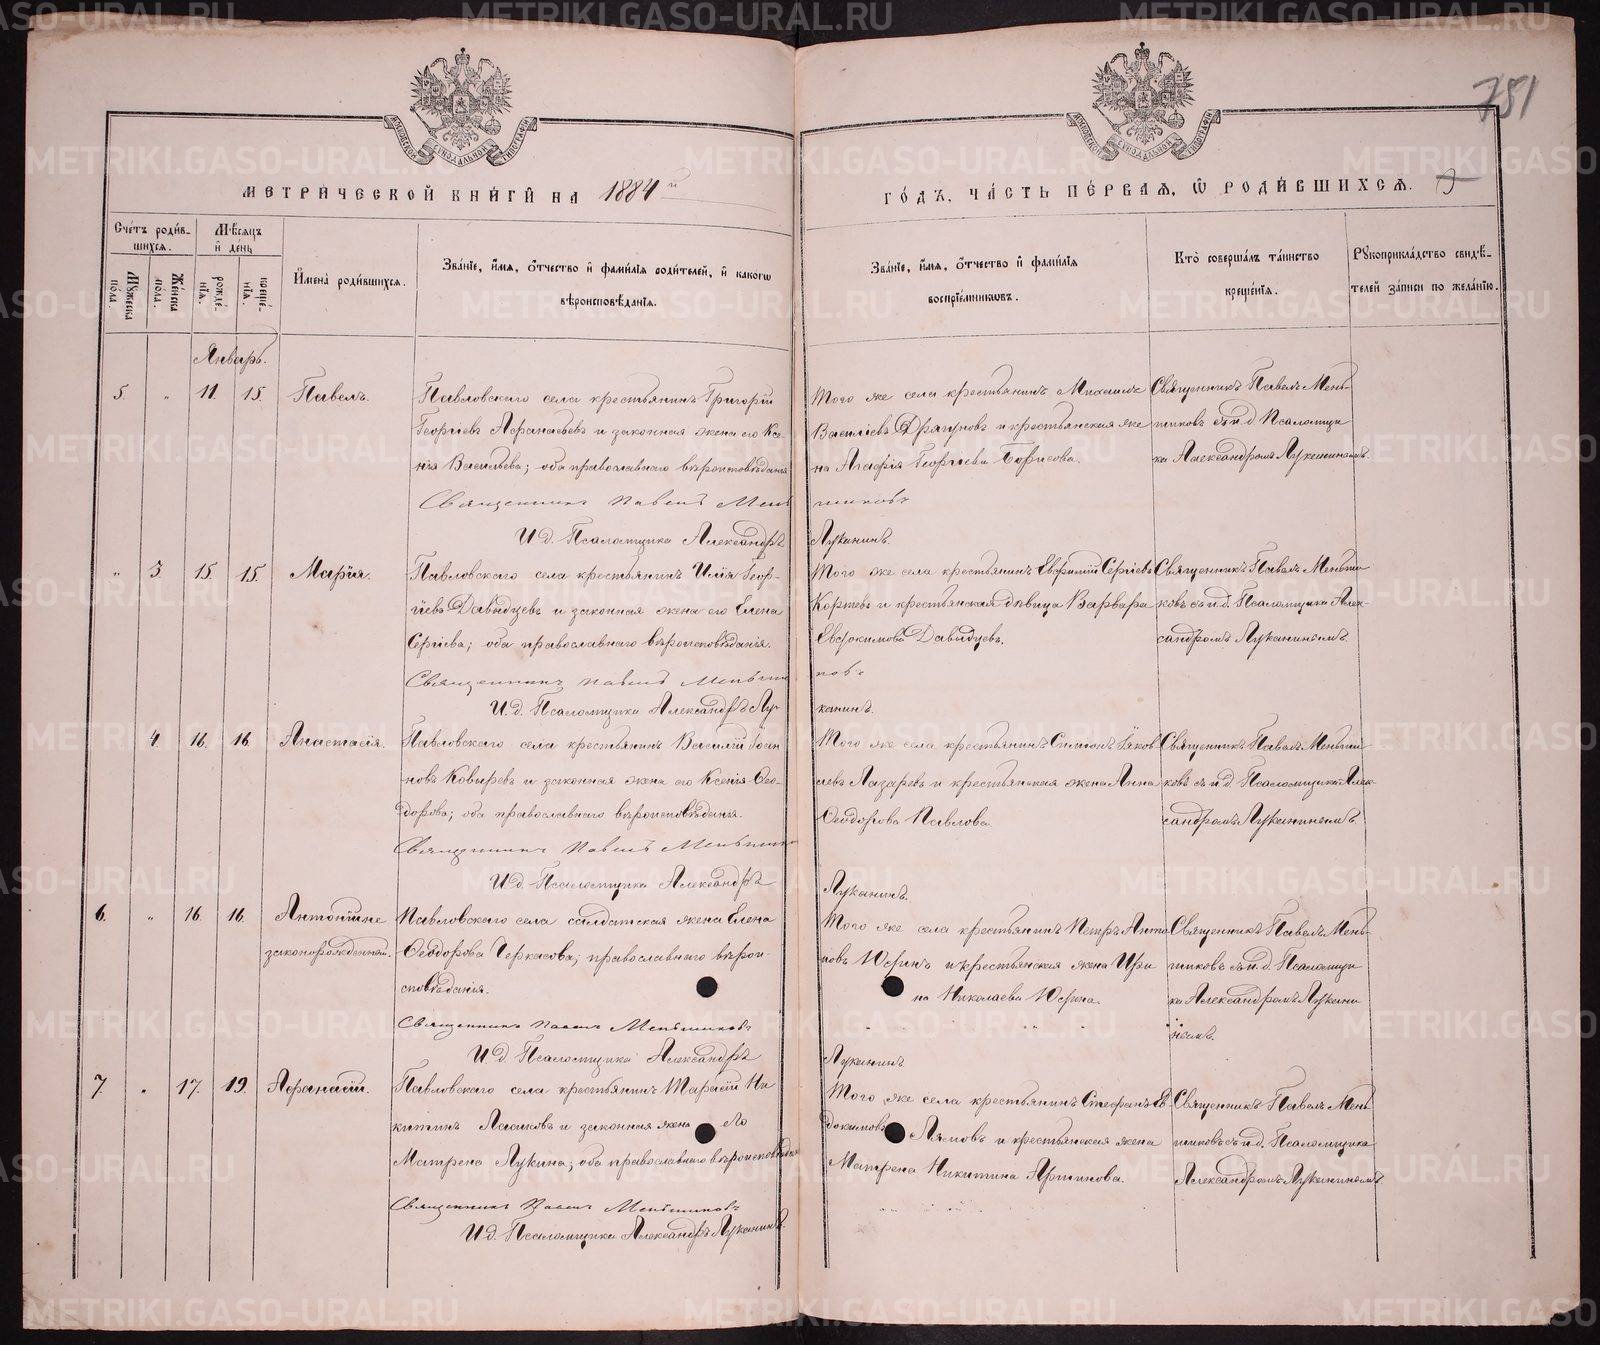 METRIKI.GASO-URAL.RU
751
МЕТРИЧЕСКОЙ КНИГИ НА 1884й
ГОДЪ, ЧАСТЬ ПЕРВАЯ, Ѿ РОДИВШИХСЯ.
Счетъ родив-
шихся.
Мѣсяцъ
и день
Мужеска
пола.
Женска
пола.
рожде-
нія.
креще-
нія.
Имена родившихся.
Званіе, имя, отчество и фамилія родителей, и какогѡ
вѣроисповѣданія.
Званіе, имя, отчество и фамилія
воспріемниковъ.
Кто совершалъ таинство
крещенія.
Рукоприкладство свидѣ-
телей записи по желанію.
Январь.
5. " 11. 15. Павелъ.
Павловскаго села крестьянинъ Григорій
Георгіевъ Афанасьевъ и законная жена его Ксе-
нія Васильева; оба православнаго вѣроисповѣданія
Священникъ Павелъ Мень
шиковъ
И.д. Псаломщика Александръ
Луканинъ.
Того же села крестьянинъ Михаилъ
Василіевъ Драгуновъ и крестьянская же
на Агафія Георгіева Борисова.
Священникъ Павелъ Мень-
шиковъ съ и.д. Псаломщи
ка Александромъ Луканинымъ.
" 3. 15. 15. Марія.
Павловскаго села крестьянинъ Илія Геор-
гіевъ Давыдцевъ и законная жена его Елена
Сергіева; оба православнаго вѣроисповѣданія.
Священникъ Павелъ Меньши
ковъ
И.д. Псаломщика Александръ Лу-
канинъ.
Того же села крестьянинъ Евфимій Сергіевъ
Коршевъ и крестьянская дѣвица Варвара
Евдокимова Давыдцевъ.
Священникъ Павелъ Меньши
ковъ съ и.д. Псаломщика Алек-
сандромъ Луканинымъ.
4. 16. 16. Анастасія.
Павловскаго села крестьянинъ Василій Іоан
новъ Ковыревъ и законная жена его Ксенія Ѳео-
дорова; оба православнаго вѣроисповѣданія.
Священникъ Павелъ Меньшико
И.д. Псаломщика Александръ
Луканинъ.
Того же села крестьянинъ Симеонъ Іаков
левъ Лазаревъ и крестьянская жена Анна
Ѳеодорова Павлова
Священникъ Павелъ Меньши
ковъ съ и.д. Псаломщика Алек-
сандромъ Луканинымъ.
6. " 16. 16. Антоній не
законорожденный.
Павловскаго села солдатская жена Елена
Ѳеодорова Черкасова; православнаго вѣрои-
сповѣданія.
Священникъ Павелъ Меньшиковъ
И.д. Псаломщика Александръ
Луканинъ.
Того же села крестьянинъ Петръ Анто
новъ Юфинъ и крестьянская жена Ири
на Николаева Юфина.
Священникъ Павелъ Мень-
шиковъ съ и.д. Псаломщи
ка Александромъ Лукани
нымъ.
7. " 17. 19. Афанасій.
Павловскаго села крестьянинъ Тарасій Ни
китинъ Ласиковъ и законная жена его
Матрена Лукина; оба православнаго вѣроисповѣданія
Священникъ Павелъ Меньшиковъ
И.д. Псаломщика Александръ Луканинъ.
Того же села крестьянинъ Стефанъ Ев-
докимовъ Лямовъ и крестьянская жена
Матрена Никитина Аршинова.
Священникъ Павелъ Мень
шиковъ съ и.д. Псаломщика
Александромъ Луканинымъ